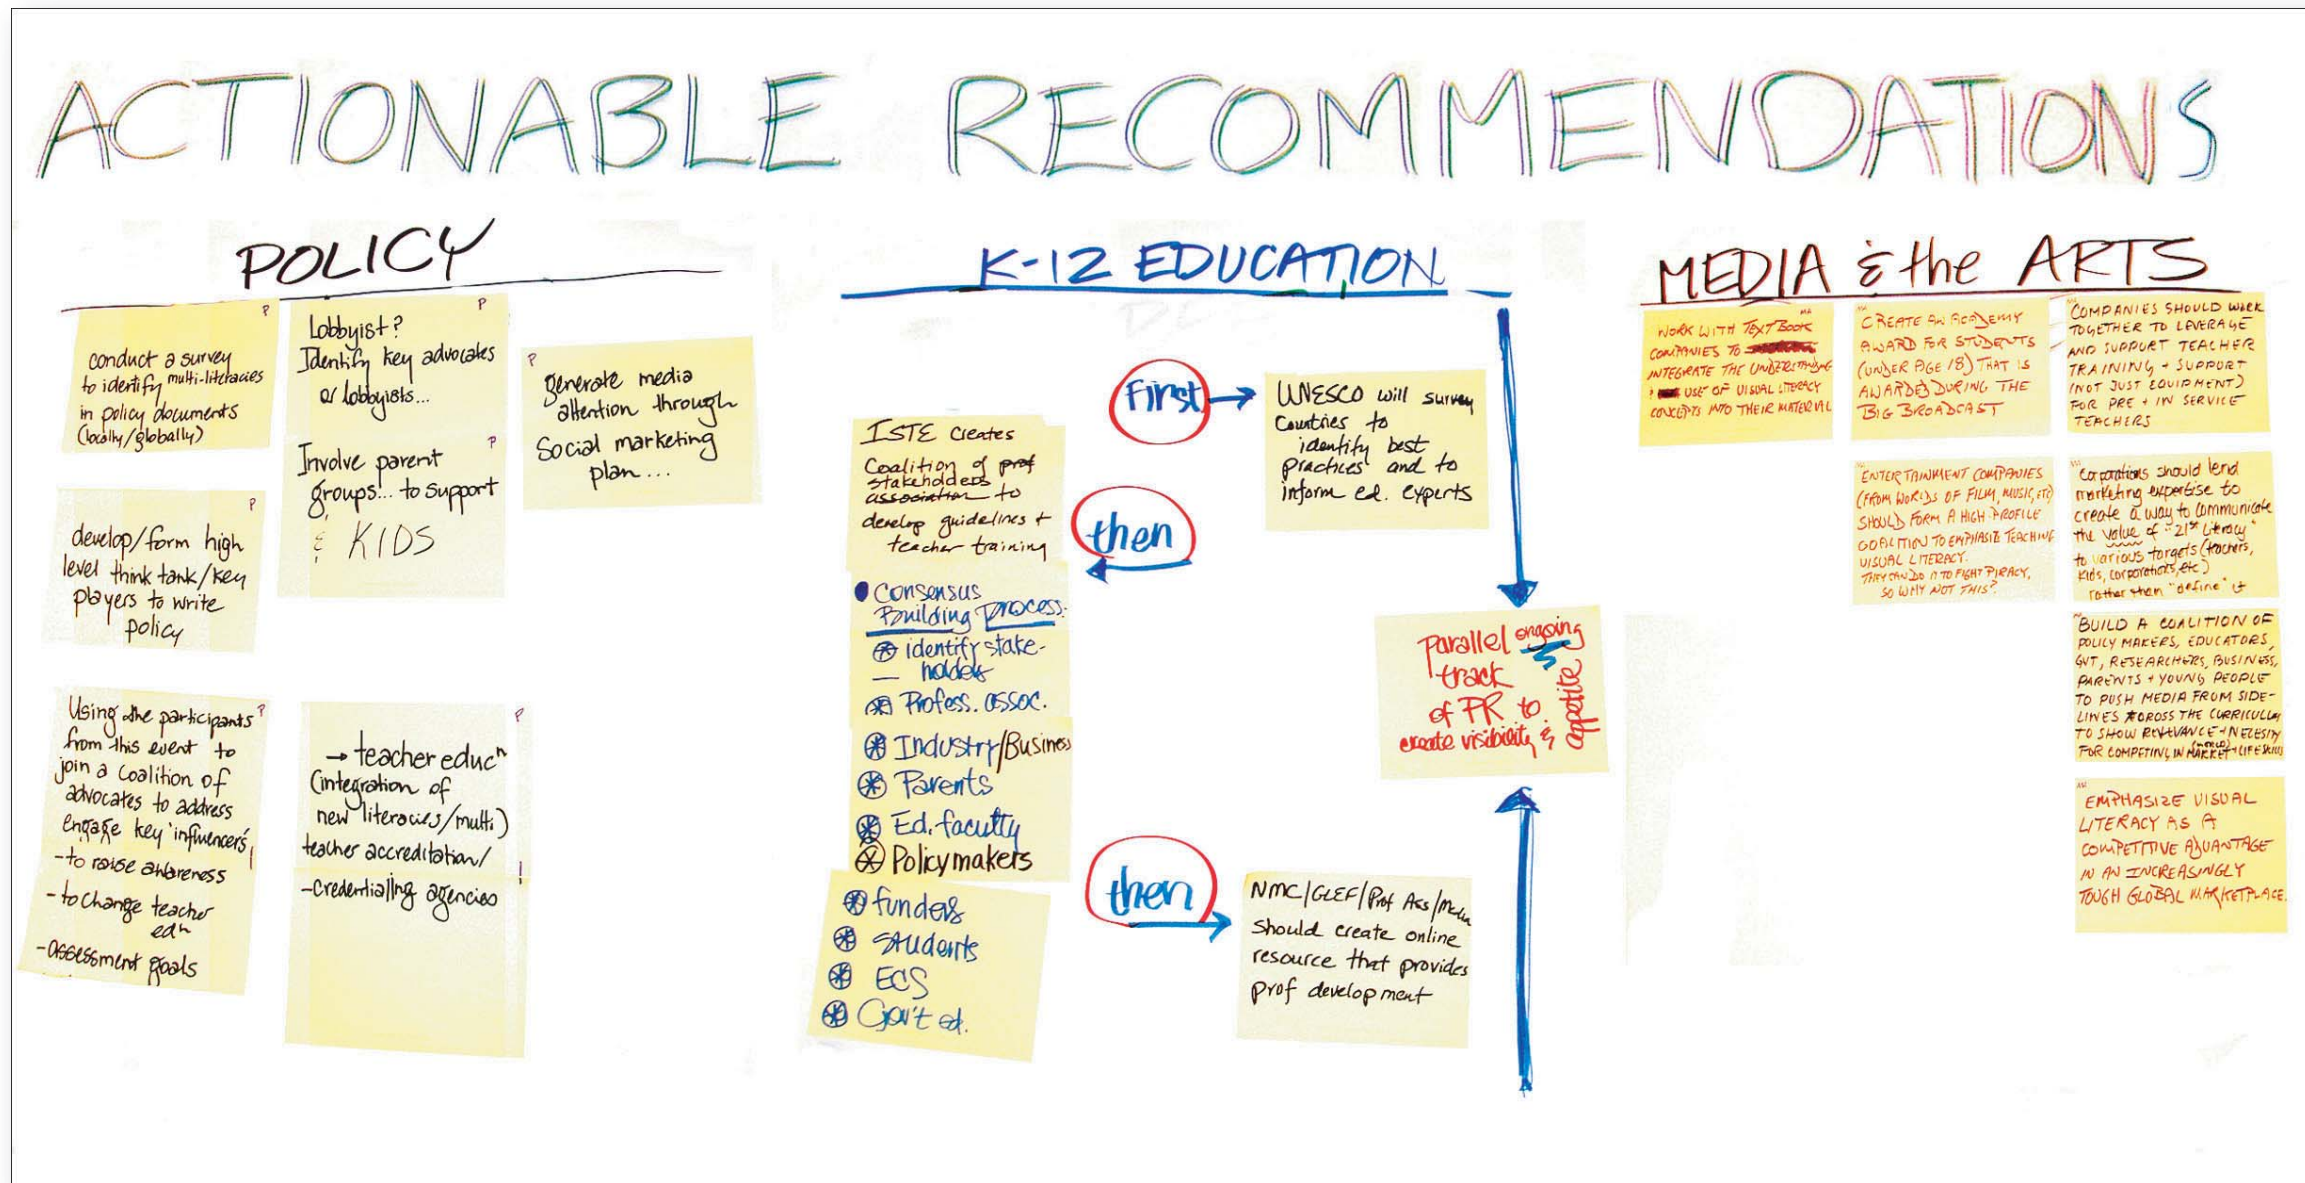 ACTIONABLE RECOMMENDATIONS
POLICY
P
conduct a survey
to identify multi-literacies
in policy documents
(locally/globally)
P
develop/form high
level think tank/key
players to write
policy
P
Using the participants
from this event to
join a coalition of
advocates to address
engage key influencers
-to raise awareness
-to change teacher
edn
-assessment goals
P
Lobbyist?
Identify key advocates
or lobbyists...
P
Involve parent
groups... to support
& KIDS
P
→ teacher educn
(integration of
new literacies/multi)
teacher accreditation/
-credentialing agencies
P
generate media
attention through
Social marketing
plan...
K-12 EDUCATION
First →
UNESCO will survey
Countries to
identify best
practices and to
inform ed. experts
then
ISTE creates
Coalition of prof
stakeholders
association to
develop guidelines +
teacher training
Consensus
Building process:
identify stake-
holders
Profess. assoc.
Industry/Business
Parents
Ed. faculty
Policymakers
funders
Students
ECS
Gov't ed.
then
NMC/GLEF/Prof Ass/Media
should create online
resource that provides
prof development
parallel ongoing
track
of PR to
create visibility &
appetite
MEDIA & the ARTS
WORK WITH TEXTBOOK
COMPANIES TO
INTEGRATE THE UNDERSTANDING
USE OF VISUAL LITERACY
CONCEPTS INTO THEIR MATERIAL
CREATE AN ACADEMY
AWARD FOR STUDENTS
(UNDER AGE 18) THAT IS
AWARDED DURING THE
BIG BROADCAST
COMPANIES SHOULD WORK
TOGETHER TO LEVERAGE
AND SUPPORT TEACHER
TRAINING + SUPPORT
(NOT JUST EQUIPMENT)
FOR PRE + IN SERVICE
TEACHERS
ENTERTAINMENT COMPANIES
(FROM WORLDS OF FILM, MUSIC, ETC)
SHOULD FORM A HIGH PROFILE
COALITION TO EMPHASIZE TEACHING
VISUAL LITERACY.
THEY CAN DO IT TO FIGHT PIRACY,
SO WHY NOT THIS?
Corporations should lend
marketing expertise to
create a way to communicate
the value of "21st Literacy"
to various targets (teachers,
kids, corporations, etc)
rather than "define" it
BUILD A COALITION OF
POLICY MAKERS, EDUCATORS,
GVT, RESEARCHERS, BUSINESS,
PARENTS + YOUNG PEOPLE
TO PUSH MEDIA FROM SIDE-
LINES ACROSS THE CURRICULUM
TO SHOW RELEVANCE + NECESITY
FOR COMPETING IN (WORLD) MARKET + LIFE SKILLS
EMPHASIZE VISUAL
LITERACY AS A
COMPETITIVE ADVANTAGE
IN AN INCREASINGLY
TOUGH GLOBAL MARKETPLACE.